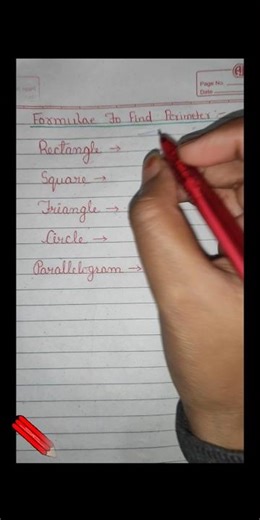 Page No.
Date
Formulae To Find Perimeter:-
Rectangle →
Square →
Triangle →
Circle →
Parallelogram →